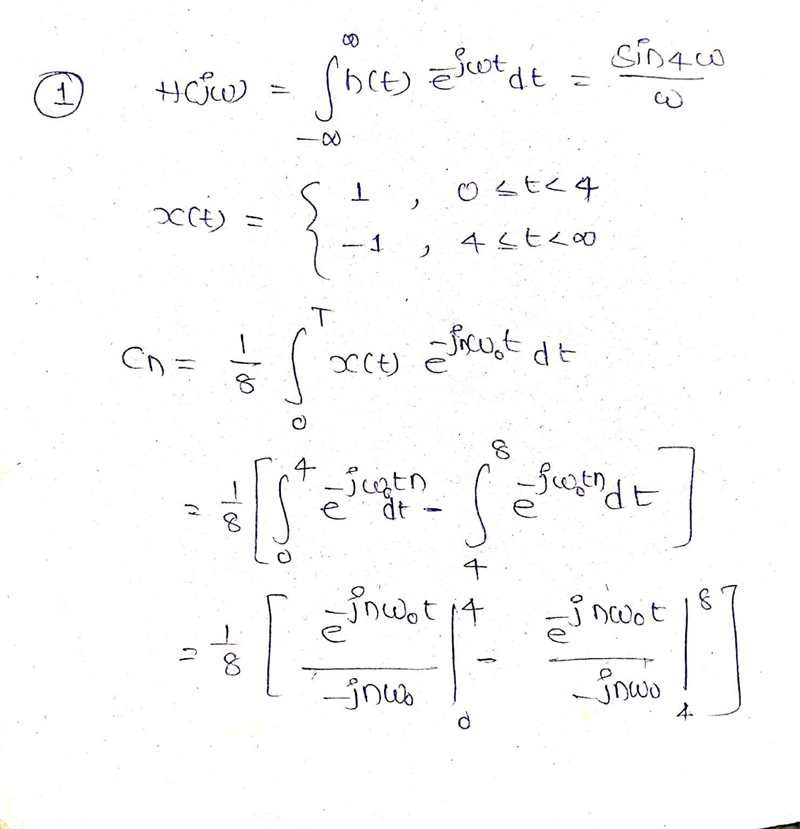 ① H(jω) = ∫_{-∞}^{∞} h(t) e^{-jωt} dt = sin4ω / ω
x(t) = { 1 , 0 ≤ t < 4
-1 , 4 ≤ t < ∞
Cn = 1/8 ∫_0^T x(t) e^{-jnω₀t} dt
= 1/8 [ ∫_0^4 e^{-jω₀tn} dt - ∫_4^8 e^{-jω₀tn} dt ]
= 1/8 [ e^{-jnω₀t} / -jnω₀ |_0^4 - e^{-jnω₀t} / -jnω₀ |_4^8 ]